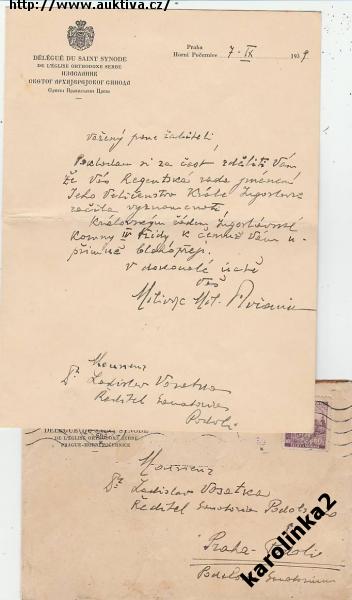 http://www.auktiva.cz/
DÉLÉGUÉ DU SAINT SYNODE
DE L'ÉGLISE ORTHODOXE SERBE
ИЗАСЛАНИК
СВЕТОГ АРХИЈЕРЕЈСКОГ СИНОДА
Praha
Horní Počernice 7-IX 1939
Vážený pane řediteli,
Pokládám si za čest sděliti Vám
že Vás Regentská rada jménem
Jeho Veličenstva Krále Jugoslavie
ráčila vyznamenati
Královským řádem Jugoslávské
Koruny IV třídy k čemuž Vám u-
přímně blahopřeji.
V dokonalé úctě
Váš
Monsieur
Dr Ladislav Vosatka
Ředitel Sanatoria
Podolí
DÉLÉGUÉ DU SAINT SYNODE
DE L'ÉGLISE ORTHODOXE SERBE
PRAGUE-HORNÍ POČERNICE
Monsieur
Dr Ladislav Vosatka
Ředitel Sanatoria
Praha-Podolí
karolinka2